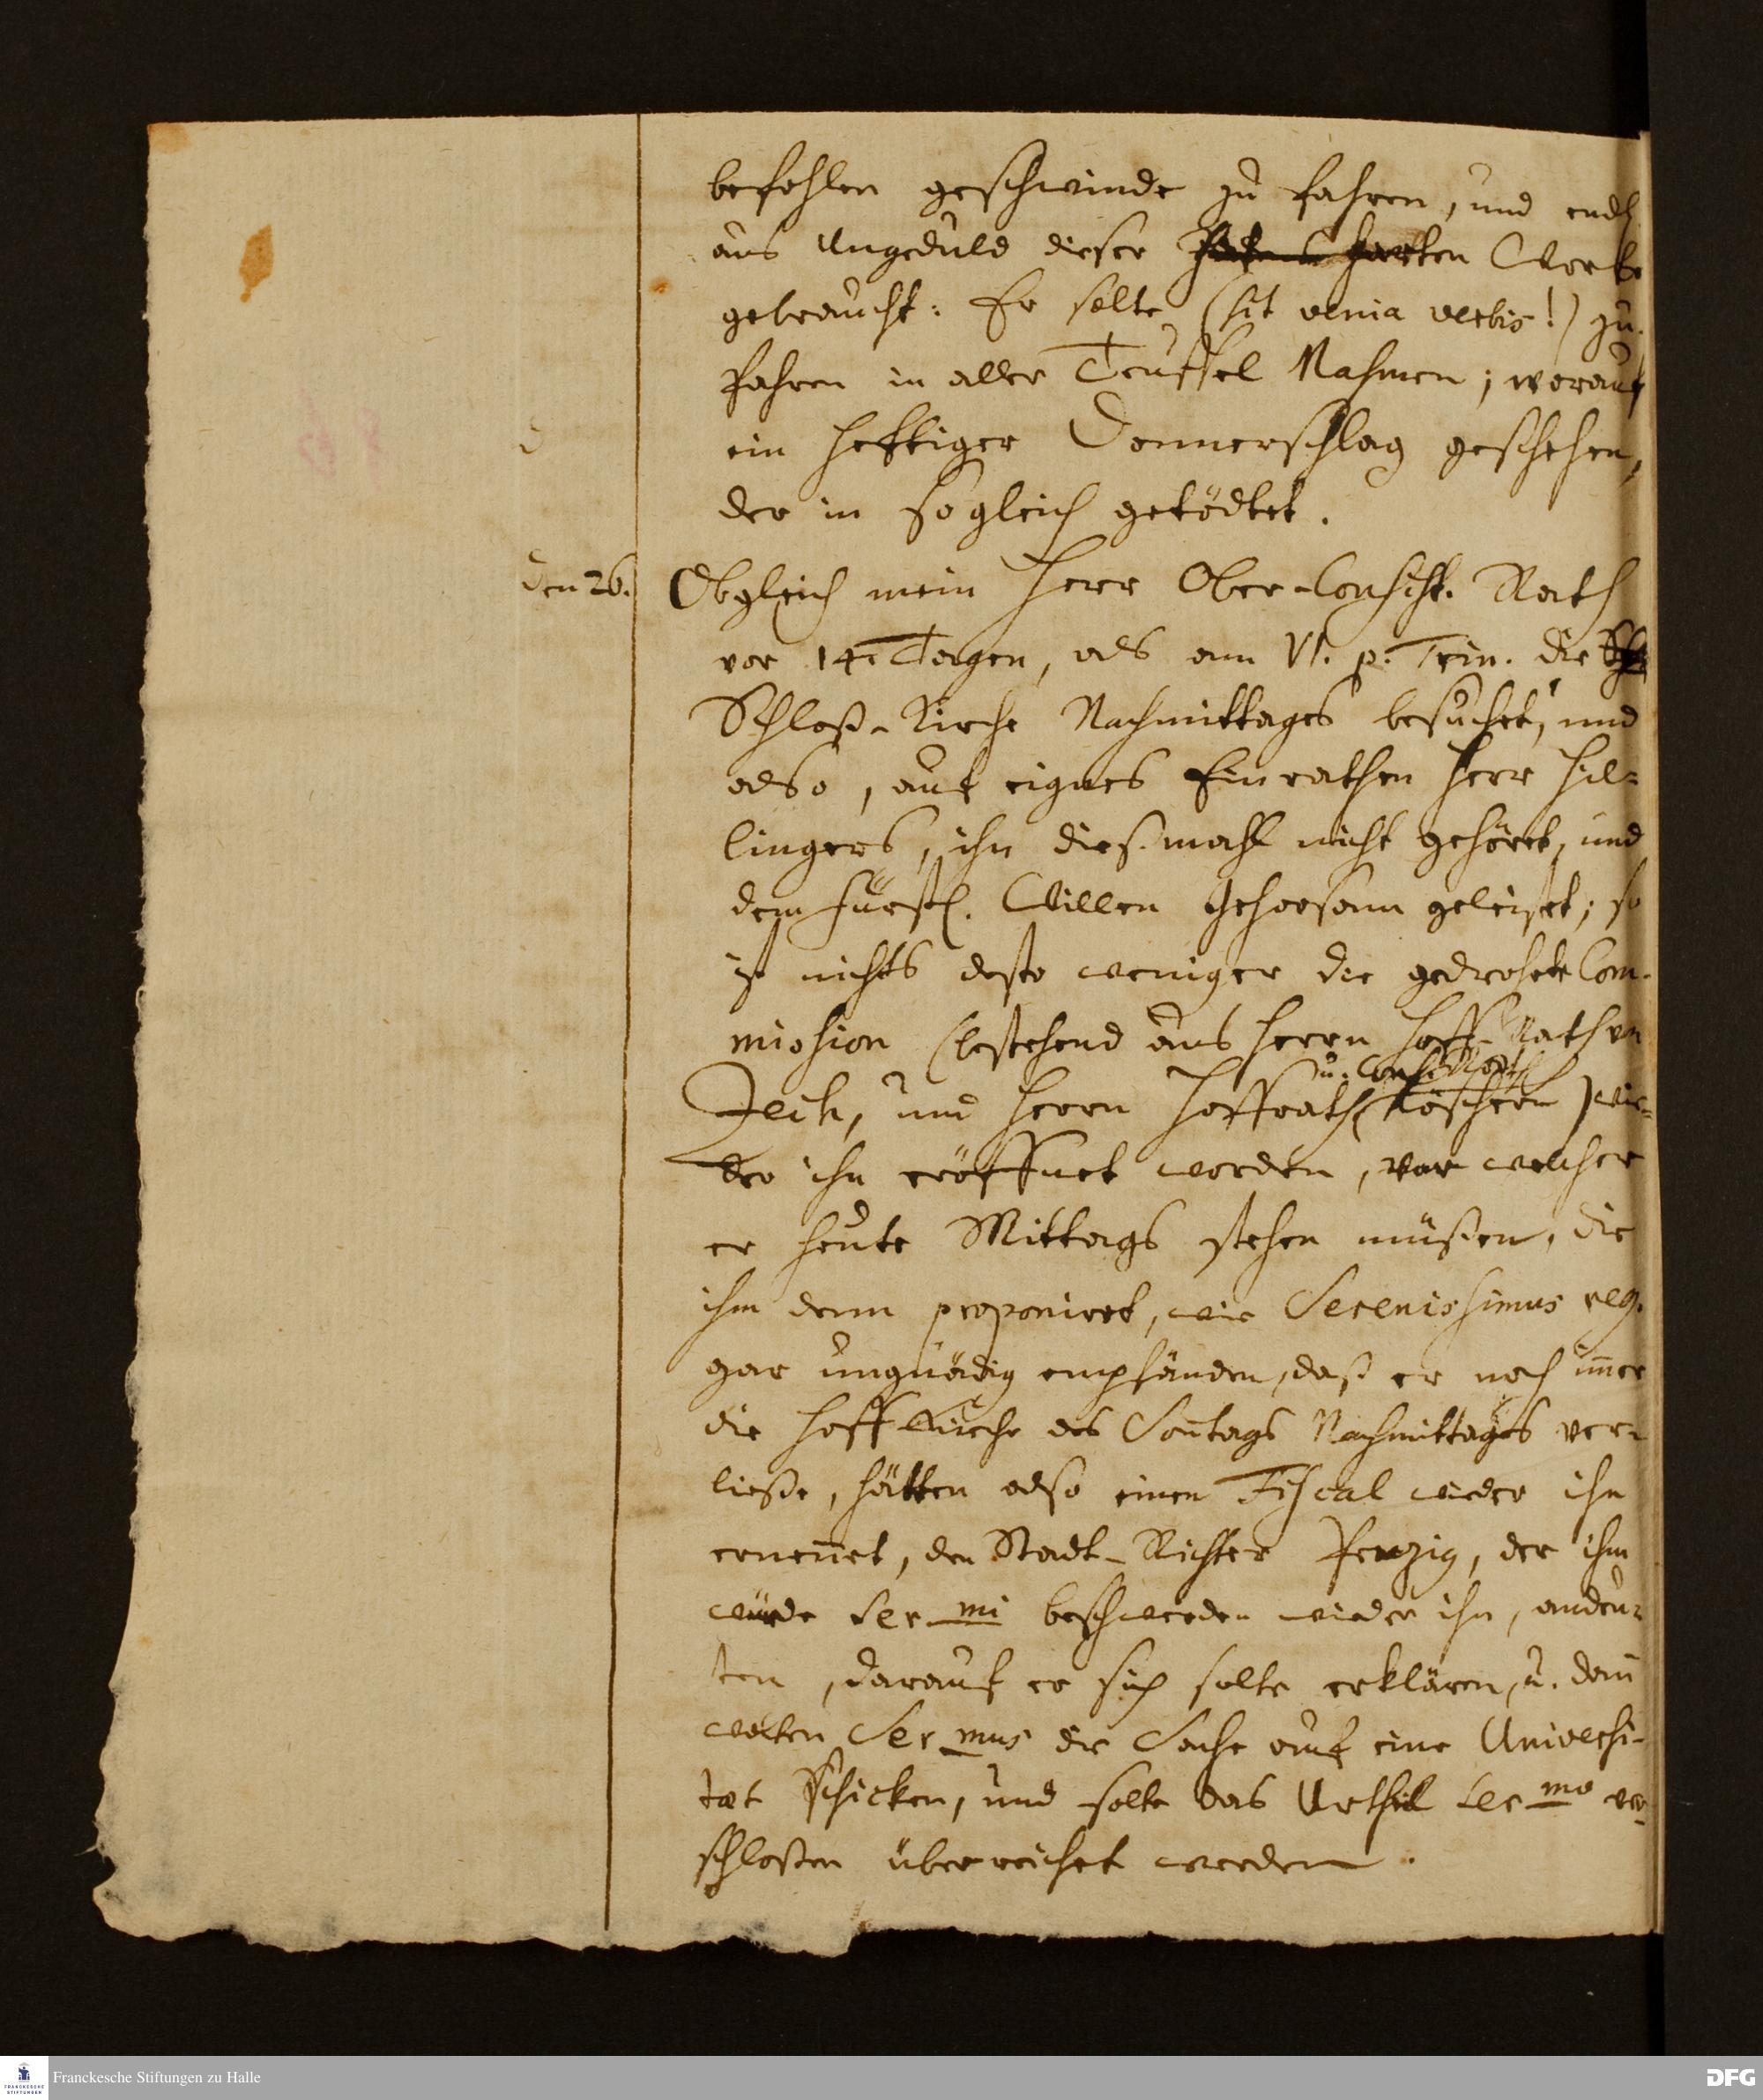 befohlen geschwinde zu fahren, und endl.
aus Ungeduld dieser harten Worte
gebraucht: Er solte (sit venia verbis!) zu
fahren in aller Teuffel Nahmen; worauf
ein hefftiger Donnerschlag geschehen,
der in sogleich getödtet.
den 26. Obgleich mein Herr Ober-Consist. Rath
vor 14. Tagen, als am VI. p. Trin. die
Schloß-Kirche Nachmittages besuchet, und
also, auf eignes Einrathen Herr Hil-
lingers, ihn dießmahl nicht gehöret, und
dem Fürstl. Willen Gehorsam geleistet; so
ist nichts desto weniger die gedrohete Com-
mission (bestehend aus Herrn Hoff-Rath von
u. Consi. Rath
Jech, und Herrn Hoffrath Röschern) wie-
der ihn eröffnet worden, vor welcher
er heute Mittags stehen müßen, die
ihm denn proponiret, wie Serenissimus reg.
gar ungnädig empfänden, daß er noch im̄er
die Hoff Kirche des Son̄tags Nachmittages ver-
ließe, hätten also einen Fiscal wieder ihn
ernen̄et, den Stadt-Richter Penzig, der ihm
würde Ser mi beschwerden wieder ihn, andeu-
ten, darauf er sich solte erklären, u. dan̄
wolten Ser mus die Sache auf eine Universi-
tæt schicken, und solte das Urtheil Ser mo ver-
schloßen überreichet werden.
Franckesche Stiftungen zu Halle
FRANCKESCHE STIFTUNGEN
DFG